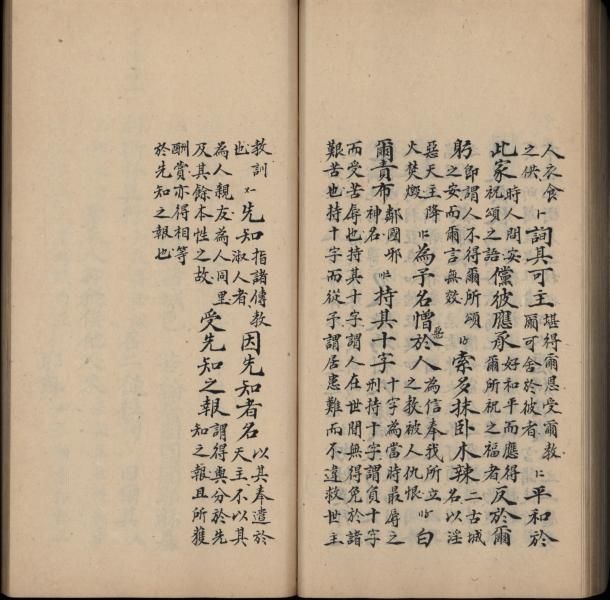 人衣食之供詢其可主堪得爾恩受爾教爾可舍於彼者平和於
此家時人問安祝頌之語儻彼應承好和平而應得爾所祝之福者反於爾
躬即謂人不得爾所頌之安而爾言無效索多抹卧木辣二古城名以淫
惡天主降火焚燬為予名憎惡於人為信奉我所立之教被人仇恨白
爾責布鄰國邪神名持其十字十字為當時最辱之刑持十字謂負十字
而受苦辱也持其十字謂人在世間無得免於諸
艱苦也持十字而從予謂居患難而不違救世主
教訓也先知指諸傳教淑人者因先知者名以其奉遣於天主不以其
為人親友為人同里及其餘本性之故受先知之報謂得與分於先知之報且所獲
酬賞亦得相等
於先知之報也